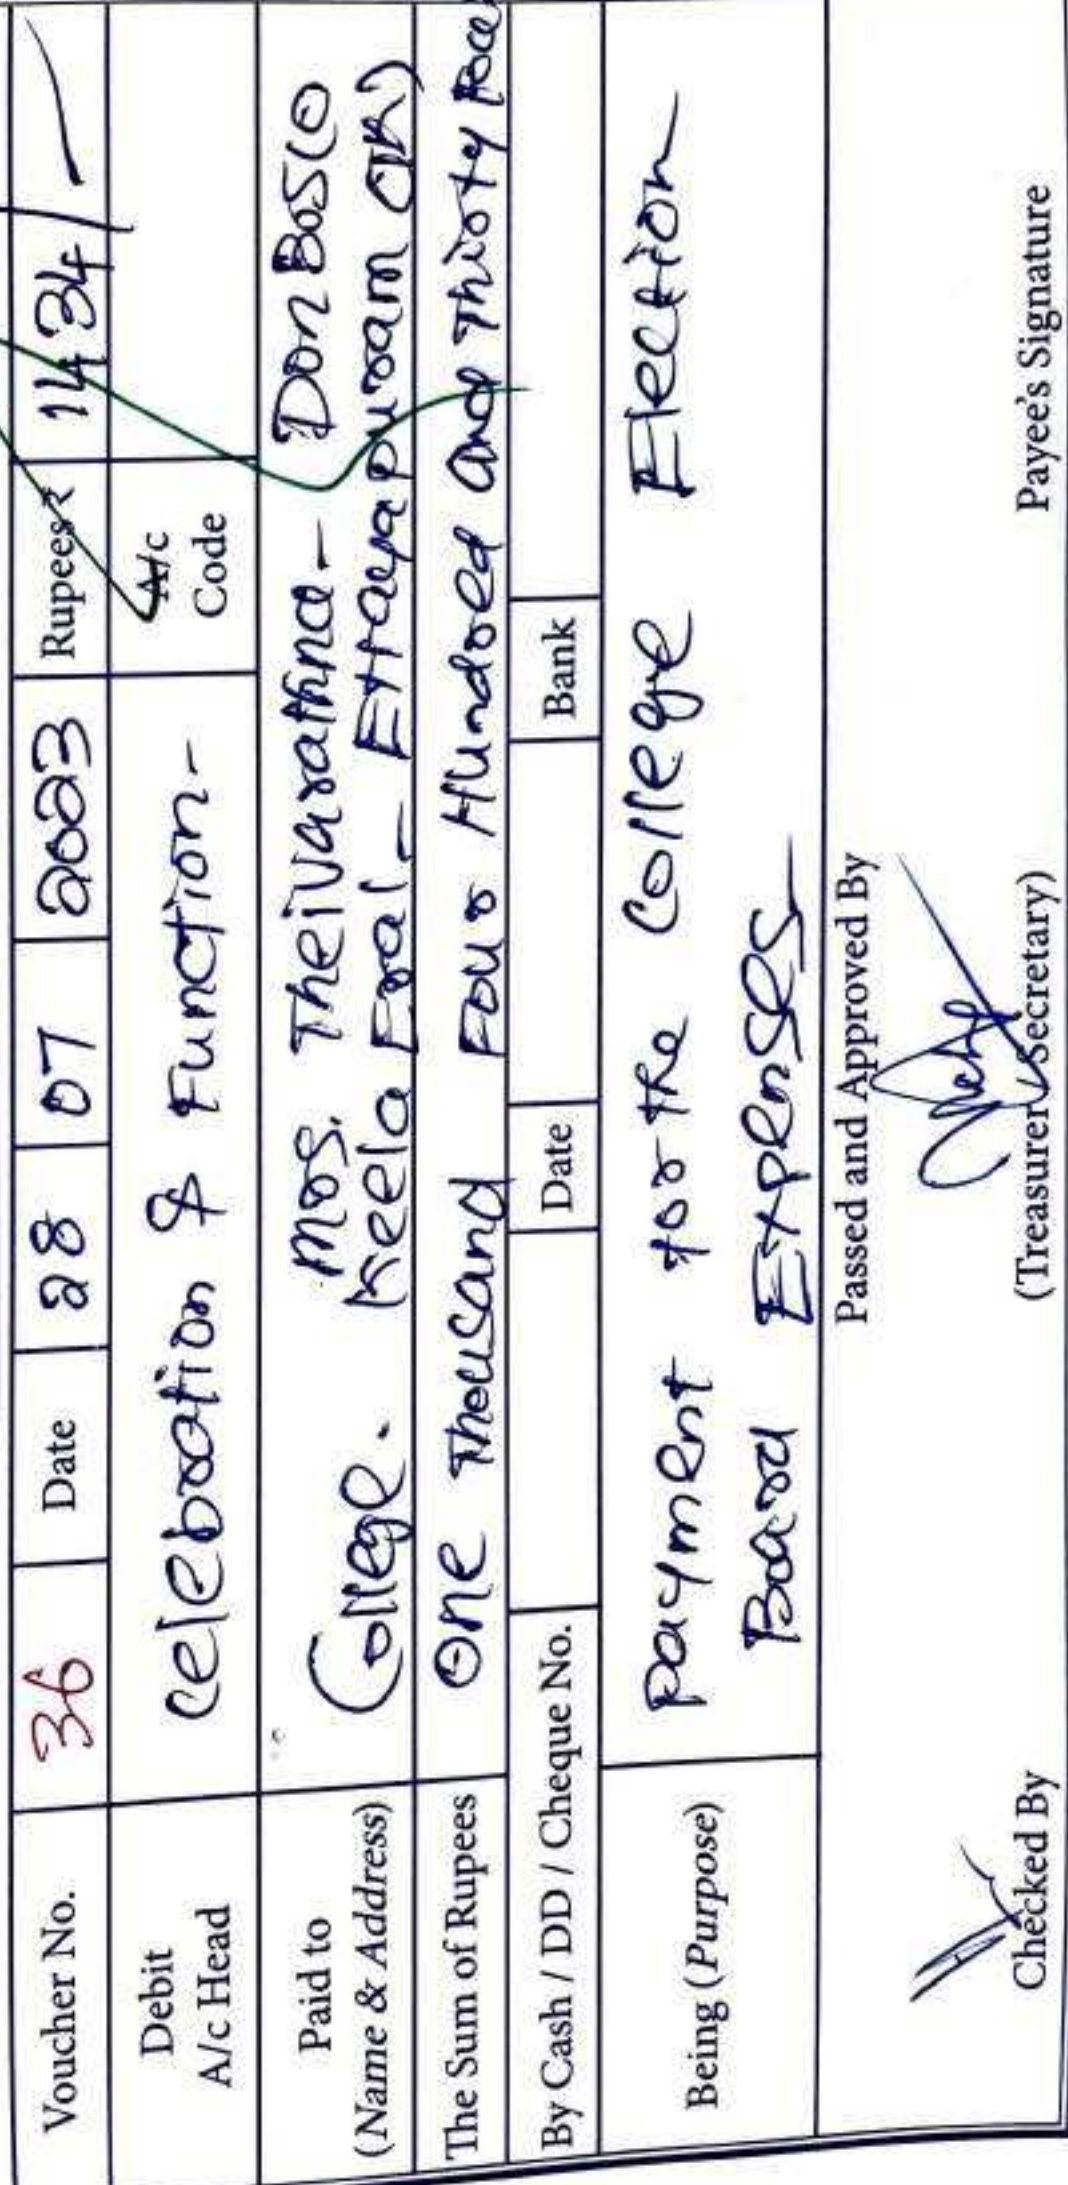 Voucher No. 36 Date 28 07 2023 Rupees ₹ 1434/-
Debit A/c Head Celebration & Function - A/c Code
Paid to (Name & Address) Mrs. Theivarathna - Don Bosco
College. Keela Eral - Ettayapuram (TK)
The Sum of Rupees One Thousand Four Hundred and Thirty Four
By Cash / DD / Cheque No. Date Bank
Being (Purpose) payment for the College Election
Board Expenses
Passed and Approved By
Checked By (Treasurer/Secretary) Payee's Signature